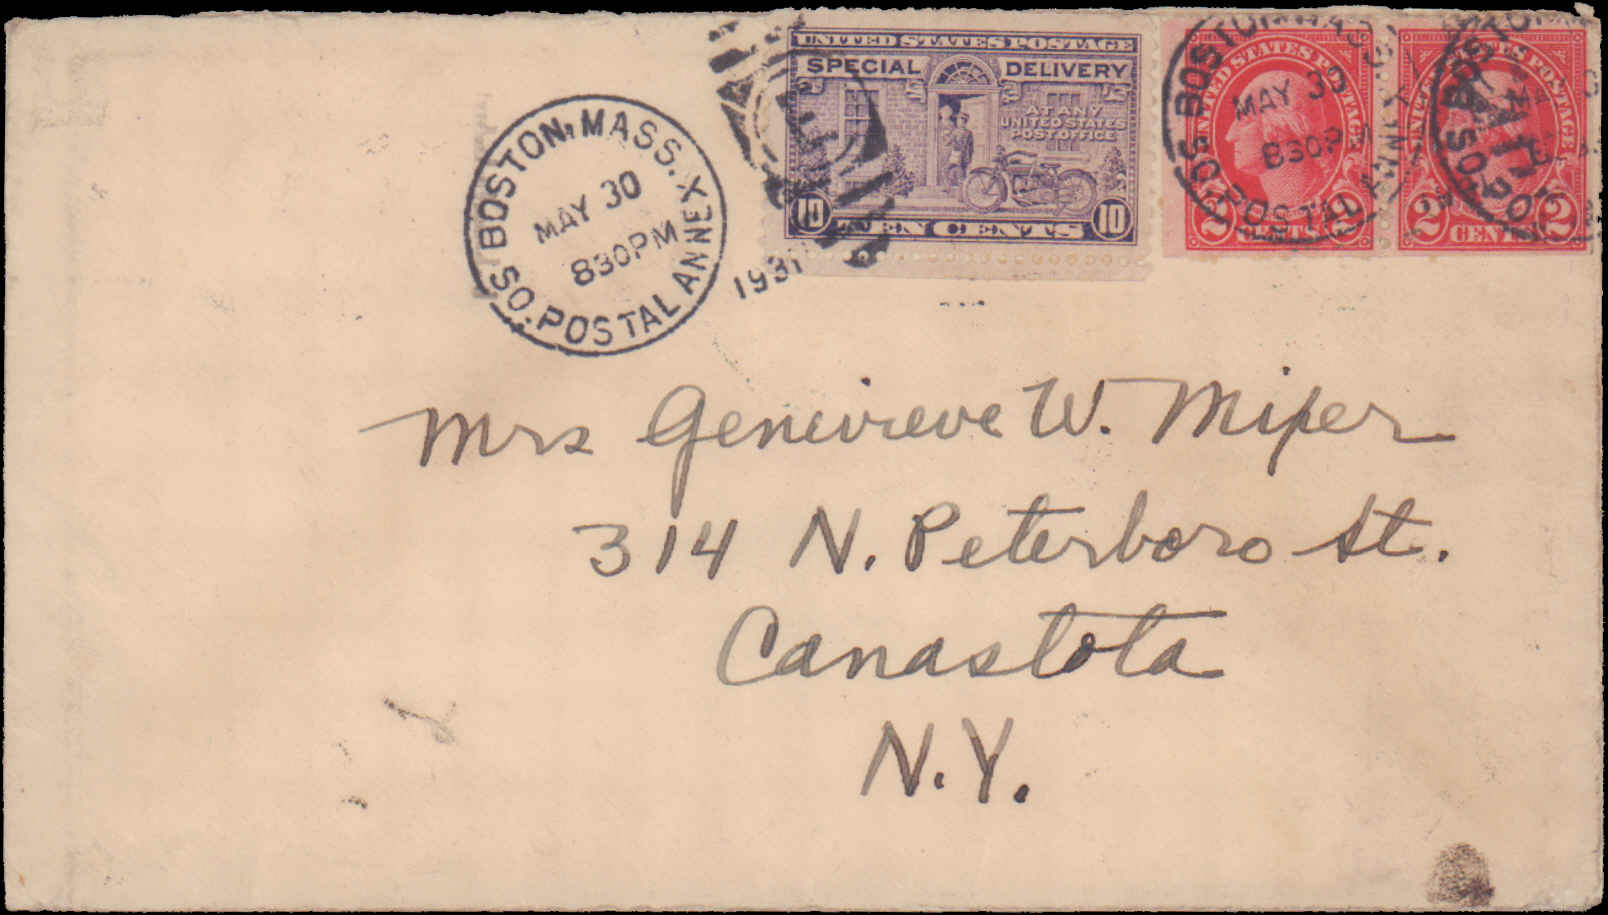 UNITED STATES POSTAGE
SPECIAL DELIVERY
AT ANY
UNITED STATES
POST OFFICE
10 TEN CENTS 10
UNITED STATES POSTAGE
2 CENTS 2
UNITED STATES POSTAGE
2 CENTS 2
BOSTON, MASS.
MAY 30
830PM
SO. POSTAL ANNEX
1931
BOSTON, MASS.
MAY 30
830PM
SO. POSTAL ANNEX
BOSTON
SO.
Mrs Genevieve W. Miper
314 N. Peterboro St.
Canastota
N.Y.